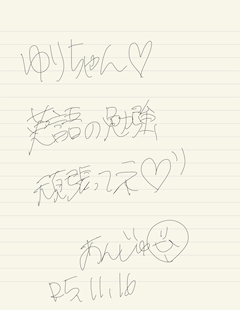 ゆりちゃん♡
英語の勉強
頑張ってネ♡
あんじゅ
R5.11.16